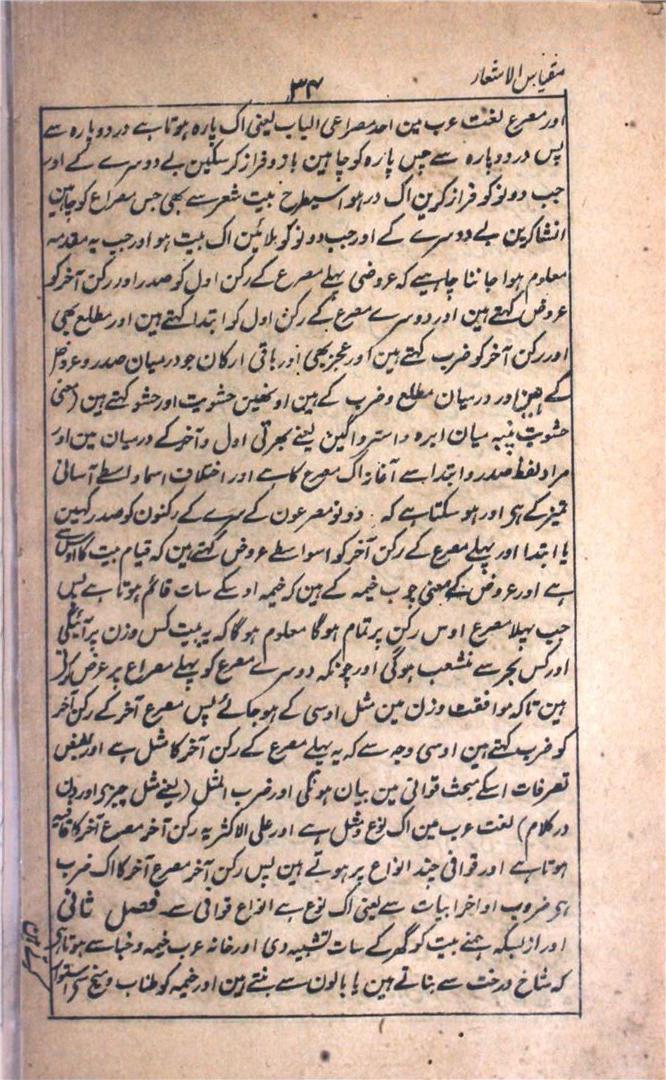 مقیاس الاشعار
۳۴
اور مصرع لغت عرب مین احد مصراعی الباب یعنی اک پارہ ہوتا ہے در دو پارہ سے
پس در دو پارہ سے جس پارہ کو چاہین باز و فراز کر سکین بے دوسرے کے اور
جب دونو کو فراز کرین اک در ہو اسیطرح بیت شعر سے بھی جس مصراع کو چاہین
انشا کرین بے دوسرے کے اور جب دونو کو ملائین اک بیت ہو اور جب یہ مقدمہ
معلوم ہوا جاننا چاہیے کہ عروضی پہلے مصرع کے رکن اول کو صدر اور رکن آخر کو
عروض کہتے ہین اور دوسرے مصرع کے رکن اول کو ابتدا کہتے ہین اور مطلع بھی
اور رکن آخر کو ضرب کہتے ہین اور عجز بھی اور باقی ارکان جو درمیان صدر و عروض
کے ہین اور درمیان مطلع و ضرب کے ہین اونھین حشویت اور حشو کہتے ہین (معنی
حشویت پنبہ میان ابرہ و استر و آگین یعنے بھرتی اول و آخر کے درمیان مین اور
مراد لفظ صدر و ابتدا سے آغاز اک مصرع کا ہے اور اختلاف اسما واسطے آسانی
تمیز کے ہی اور ہو سکتا ہے کہ دونو مصرعون کے سرے کے رکنون کو صدر کہین
یا ابتدا اور پہلے مصرع کے رکن آخر کو اسواسطے عروض کہتے ہین کہ قیام بیت کا اوس سے
ہے اور عروض کے معنی چوب خیمہ کے ہین کہ خیمہ اوسکے سات قائم ہوتا ہے پس
جب پہلا مصرع اوس رکن پر تمام ہوگا معلوم ہوگا کہ یہ بیت کس وزن پر آئیگی
اور کس بحر سے منشعب ہوگی اور چونکہ دوسرے مصرع کو پہلے مصراع پر عرض کرتے
ہین تاکہ موافقت وزن مین مثل اوسی کے ہو جائے پس مصرع آخر کے رکن آخر
کو ضرب کہتے ہین اوسی وجہ سے کہ یہ پہلے مصرع کے رکن آخر کا مثل ہے اور بعض
تصرفات اسکے مبحث قوافی مین بیان ہونگی اور ضرب المثل (یعنے مثل چیزی اوردن
در کلام) لغت عرب مین اک نوع و مثل ہے اور علی الاکثر یہ رکن آخر مصرع آخر کا قافیہ
ہوتا ہے اور قوافی چند انواع پر ہوتے ہین پس رکن آخر مصرع آخر کا اک ضرب
ہی ضروب اواخر ابیات سے یعنی اک نوع ہے انواع قوافی سے فصل ثانی
اور ازبسکہ ہمنے بیت کو گھر کے سات تشبیہ دی اور خانہ عرب خیمہ و خبا سے ہوتا ہی
کہ شاخ درخت سے بناتے ہین یا بالون سے بنتے ہین اور خیمہ کو طناب و میخ سے استوار